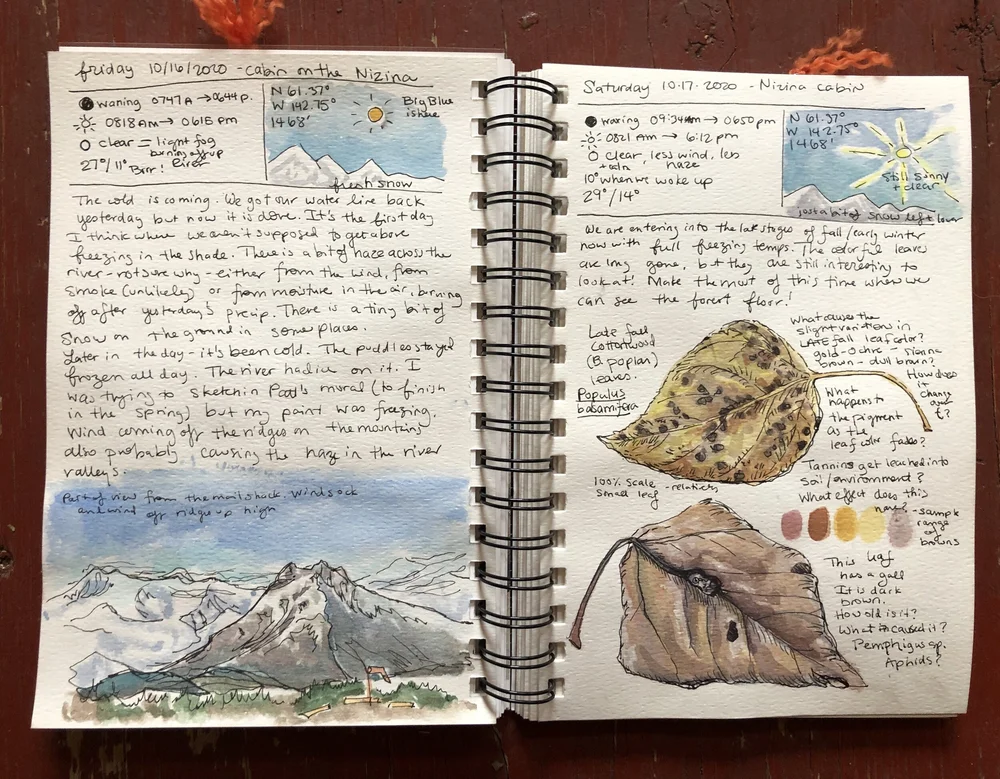 friday 10/16/2020 - cabin on the Nizina
waning 0747A → 0644p.
0818 AM → 0615 pm
clear = light fog
burning off up
River
27°/11° Brrr!
N 61.37°
W 142.75°
1468'
Big Blue
is here
fresh snow
The cold is coming. We got our water line back
yesterday but now it is done. It's the first day
I think where we aren't supposed to get above
freezing in the shade. There is a bit of haze across the
river - not sure why - either from the wind, from
smoke (unlikely) or from moisture in the air, burning
off after yesterday's precip. There is a tiny bit of
snow on the ground in some places.
Later in the day - it's been cold. The puddles stayed
frozen all day. The river had ice on it. I
was trying to sketch in Patt's mural (to finish
in the spring) but my paint was freezing.
Wind coming off the ridges on the mountains
also probably causing the haze in the river
valleys.
Part of view from the mail shack. Windsock
and wind off ridge up high
Saturday 10.17.2020 - Nizina cabin
waxing 09:34am → 0650pm
0821 AM → 6:12 pm
clear, less wind, less
haze
10° when we woke up
29°/14°
N 61.37°
W 142.75°
1468'
Still sunny
+ clear
just a bit of snow left over
We are entering into the late stages of fall/early winter
now with full freezing temps. The colorful leaves
are long gone, but they are still interesting to
look at! Make the most of this time when we
can see the forest floor!
Late fall
cottonwood
(B. poplar)
leaves.
Populus
balsamifera
What causes the
slight variations in
LATE fall leaf color?
gold - ochre - sienna
brown - dull brown?
How does
it
change
over
t?
What
happens to
the pigment
as the
leaf color fades?
Tannins get leached into
soil/environment?
What effect does this
have?
- sample
range
of
browns
100% scale - relatively
small leaf
This leaf
has a gall
It is dark
brown.
How old is it?
What caused it?
Pemphigus sp.
Aphids?